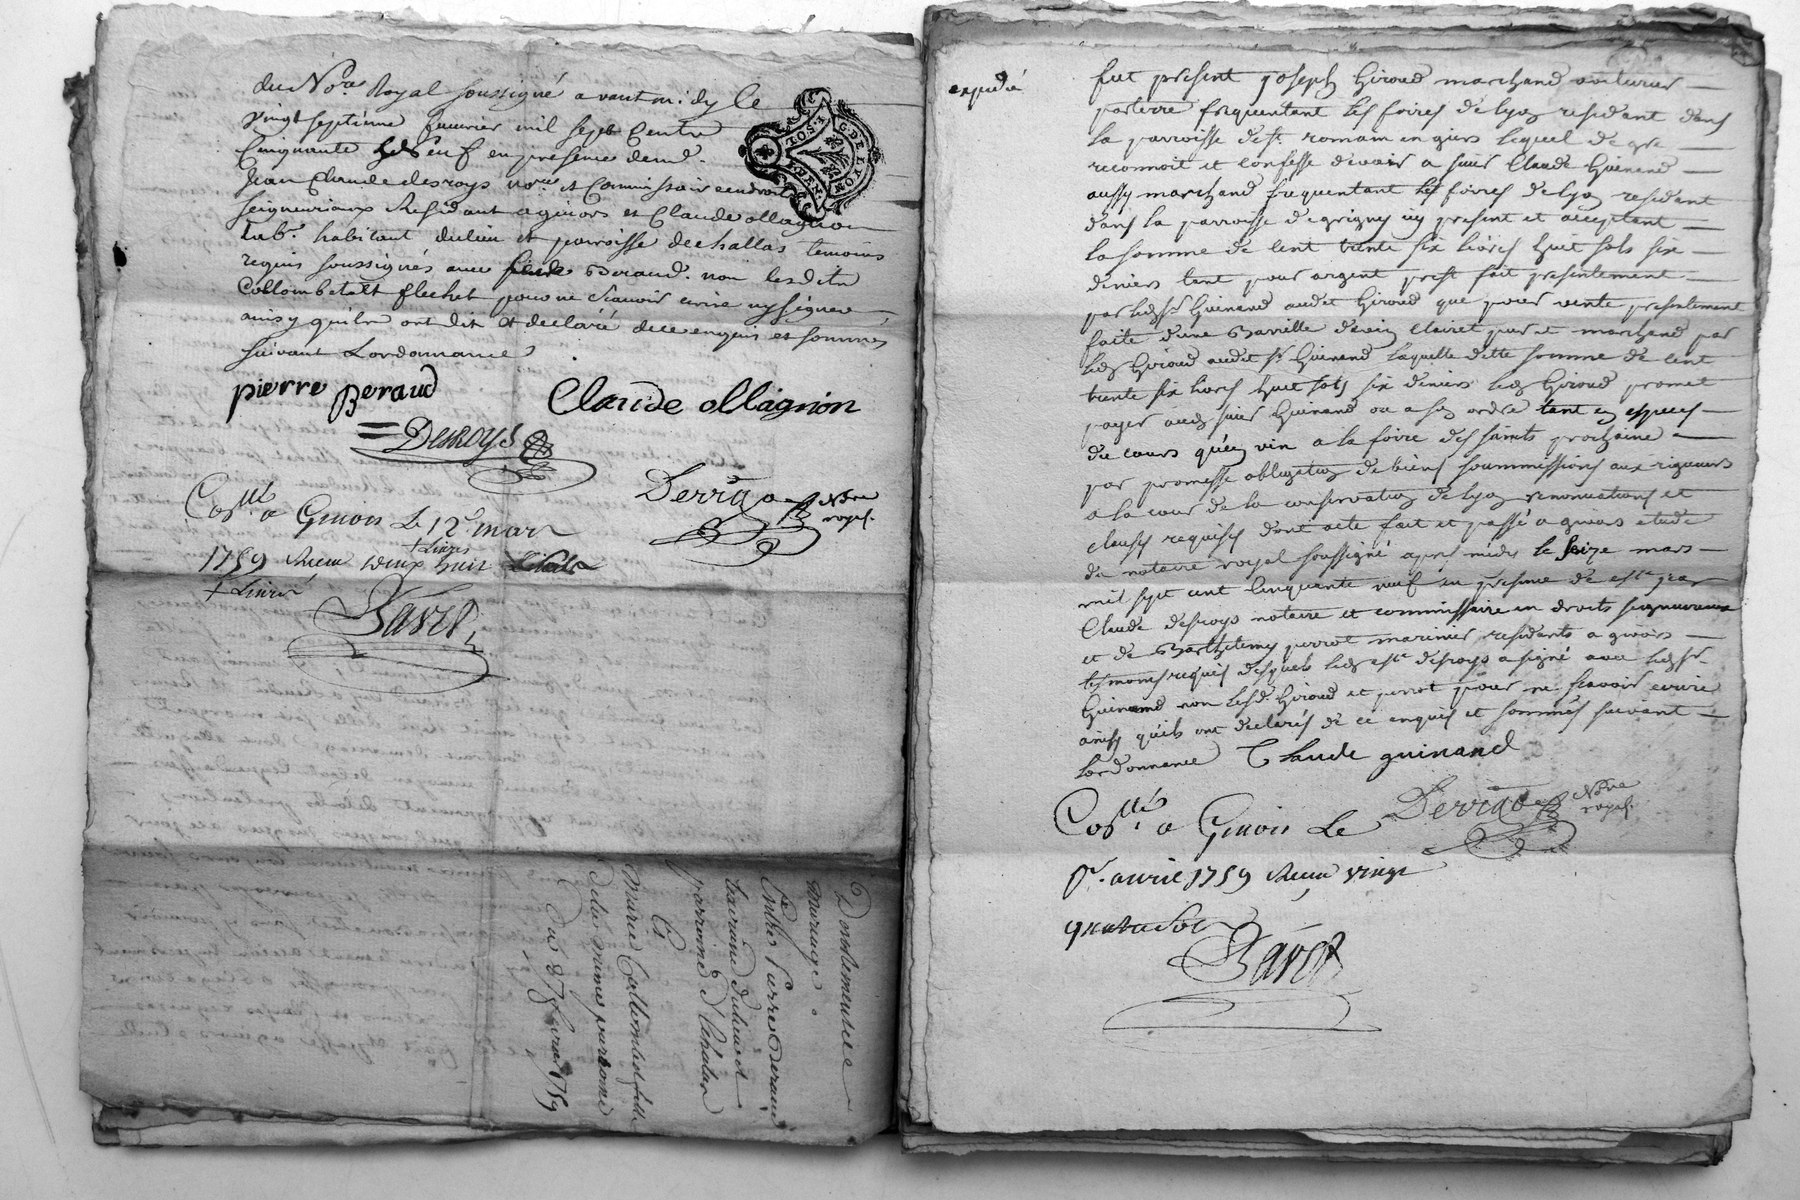 du No.re Royal soussigné avant midy le
vingt septieme fevrier mil sept Cents
Cinquante neuf en présence de
Jean Claude desroys no.re et Commissaire en droit
seigneuriaux Residant a givors et Claude ollagnon
lab.r habitant du lieu et paroisse dechallas temoins
requis soussignés avec Beraud non lesdits
Collombet et flechet pour ne scavoir ecrire ny signer
ainsy quils ont dit et declaré de ce enquis et sommés
suivant Lordonnance
G.DE LYON
pierre Beraud
Claude ollagnion
Desroys
Derrias Nore royal.
Coñ.llé a Givors Le 12 mars
+ Livres
1759 Receu deux huit
+ Livres
Savet
Donñ
mariage
Entre Pierre Beraud
du lieu et
parroisse d'Echalas
Et
Marie Collombet fille
de la meme parroisse
Du 27 fevrier 1759
expedié
fut présent joseph Giroud marchand voiturier
par terre frequentant les foires de lyon residant dans
la parroisse de st. romain en giers lequel de gre
reconnoit et confesse devoir a sieur Claude Guinand
aussy marchand frequentant les foires de lyon residant
dans la parroisse de grigny icy present et acceptant
la somme de cent trente six livres huit sols six
deniers tant pour argent prest fait presentement
par ledsr. Guinand audit Giroud que pour vente presentement
faite d'une Barrille de vin clairet pur et marchand par
led Giroud audit sr. Guinand laquelle ditte somme de cent
trente six livres huit sols six deniers led Giroud promet
payer aud sieur Guinand ou a son ordre tant en especes
du cours qu'en vin a la foire des saints prochaine
par promesse obligation de biens soummissions aux rigueurs
a la cour de la conservation de lyon renonciations et
clauses requises dont acte fait et passé a givors etude
du notaire royal soussigné apres midi le seize mars
mil sept cent cinquante neuf en presence de jean
Claude desroys notaire et commissaire en droits seigneuriaux
et de Barthelemy perrot marinier residants a givors
temoins requis desquels led desroys a signé avec ledsr.
Guinand non lesd Giroud et perrot pour ne scavoir ecrire
ainsy qu'ils ont declarés de ce enquis et sommés suivant
lordonnance Claude guinand
Derrias Nore royal.
Coñ.llé a Givors Le
p.r avril 1759 Receu vingt
quatre sols
Savet